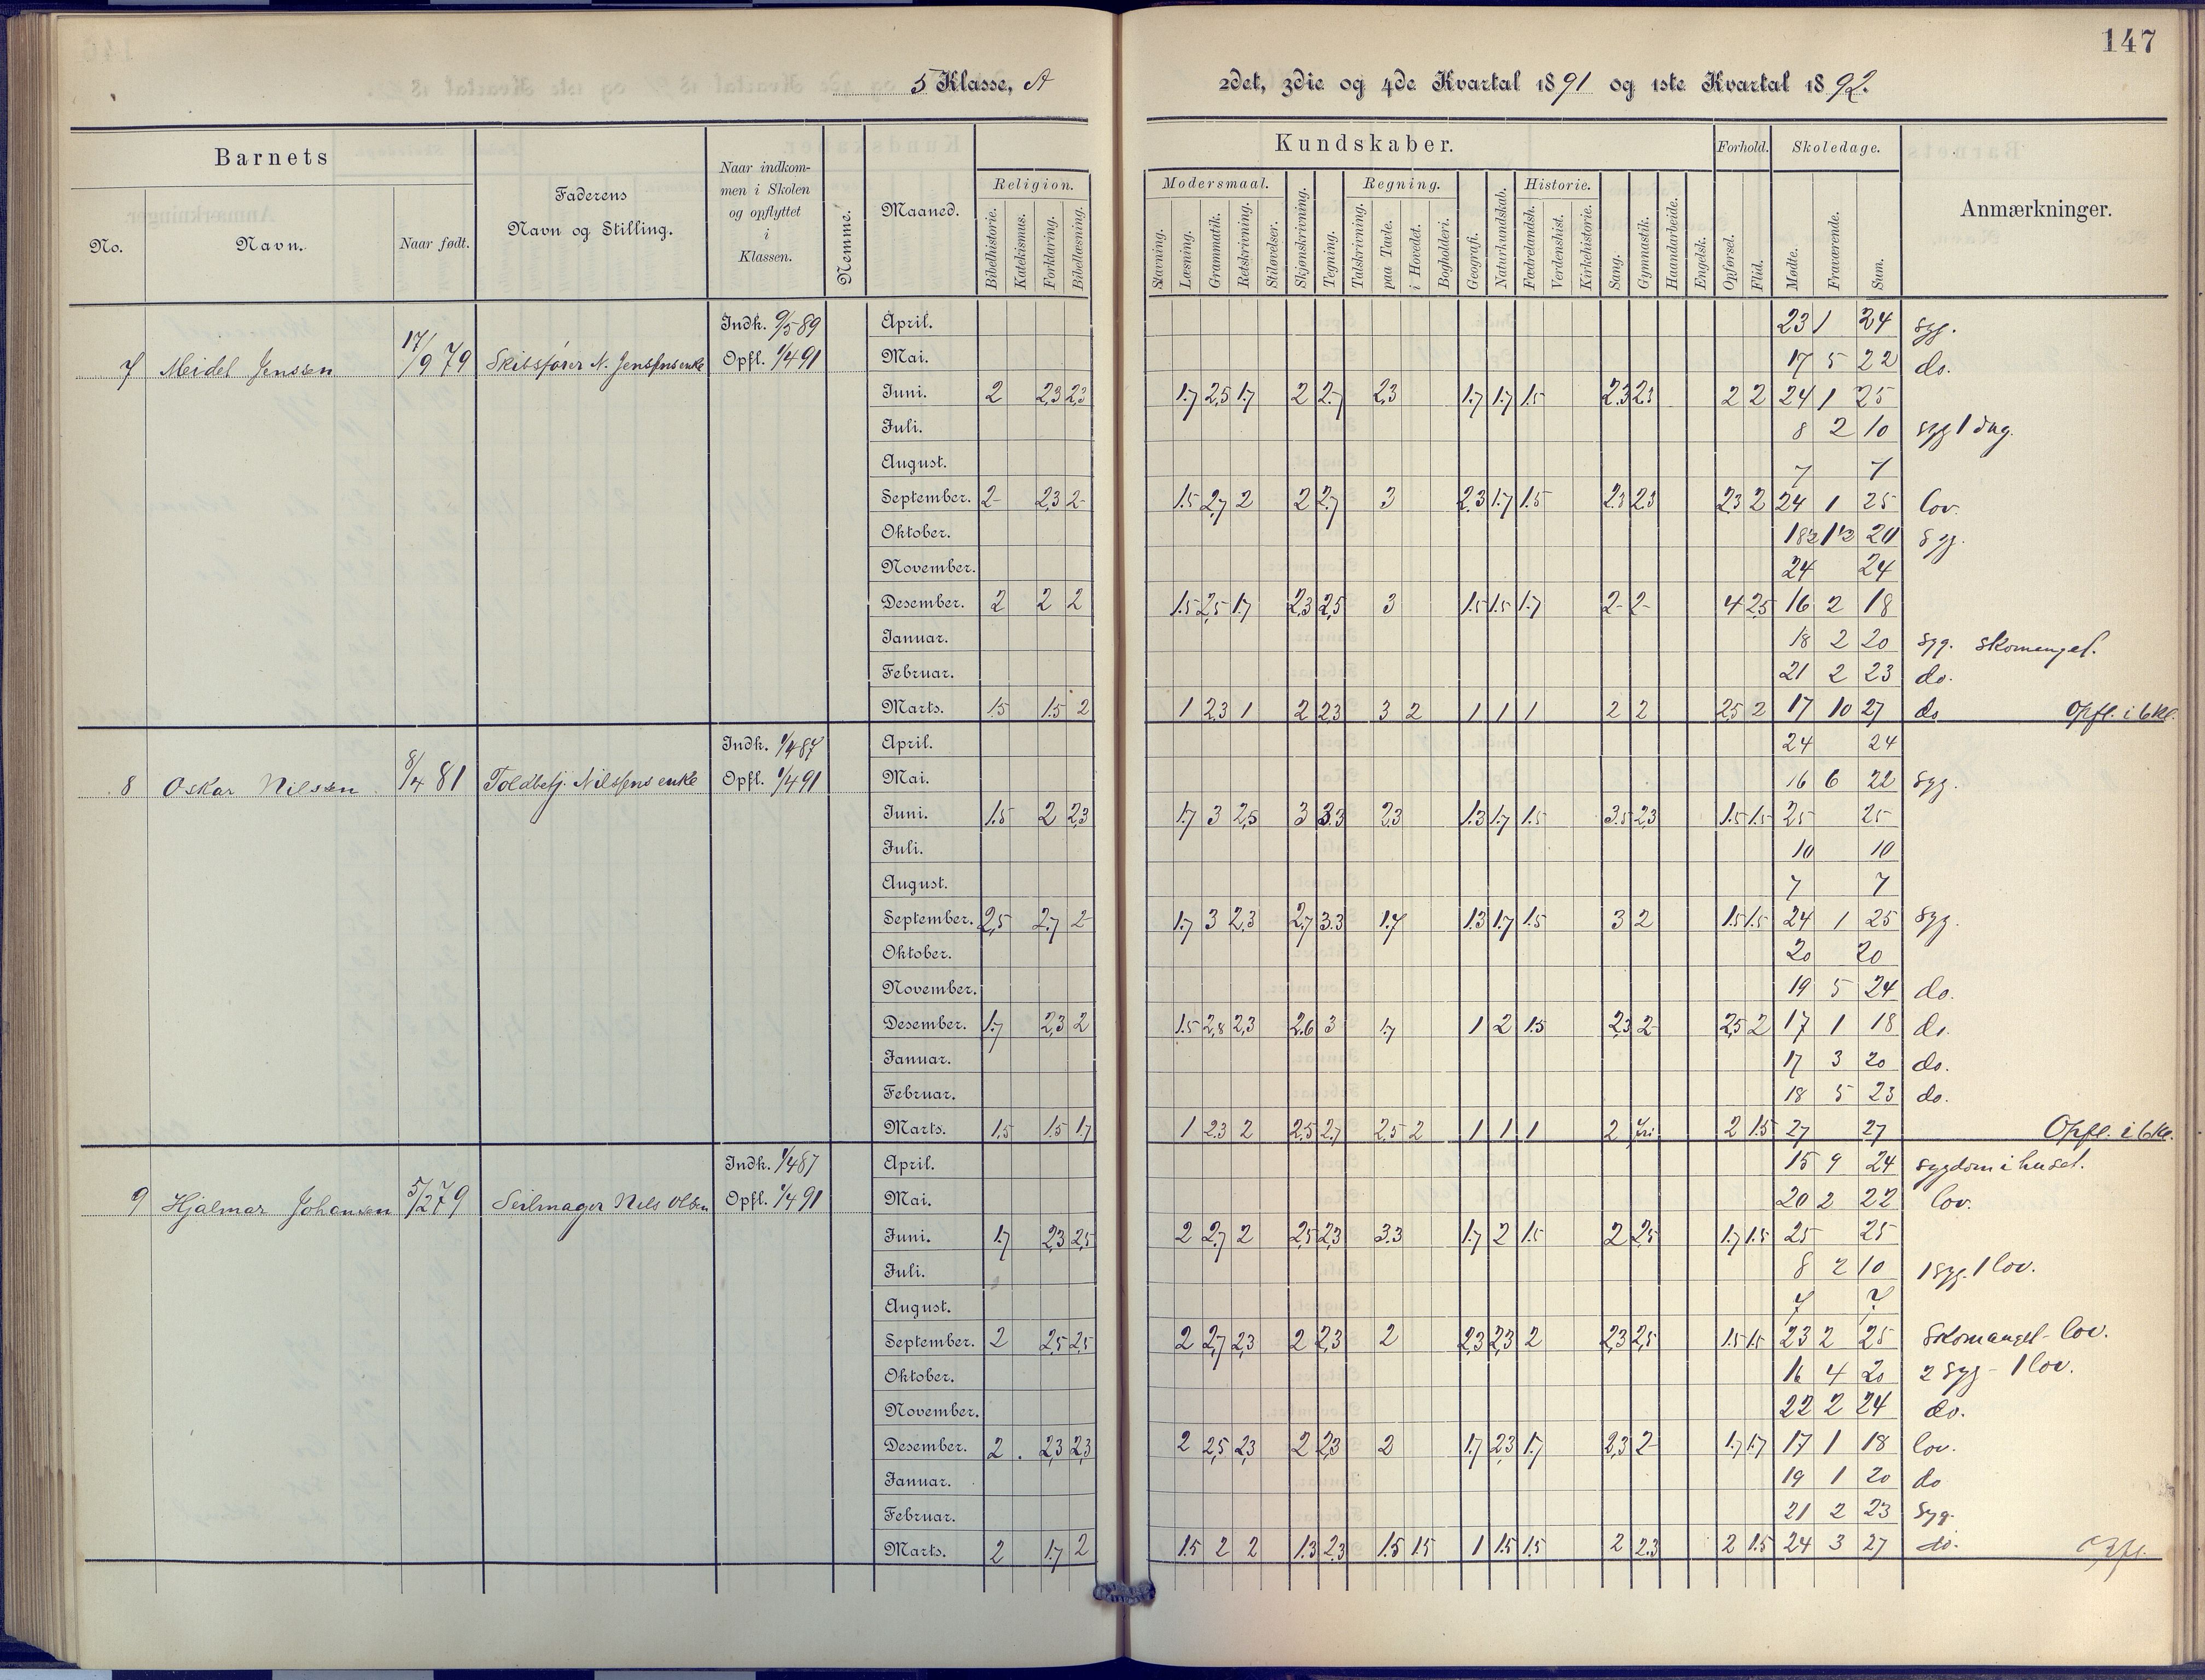 147
5 Klasse, A
2det, 3die og 4de Kvartal 1891 og 1ste Kvartal 1892.
Barnets
No.
Navn.
Naar født.
Faderens
Navn og Stilling.
Naar indkom-
men i Skolen
og opflyttet
i
Klassen.
Nemme.
Maaned.
Religion.
Bibelhistorie.
Katekismus.
Forklaring.
Bibellæsning.
Kundskaber.
Modersmaal.
Stavning.
Læsning.
Grammatik.
Retskrivning.
Stiløvelser.
Skjønskrivning.
Tegning.
Regning.
Talskrivning.
paa Tavle.
i Hovedet.
Bogholderi.
Geografi.
Naturkundskab.
Historie.
Fædrelandsh.
Verdenshist.
Kirkehistorie.
Sang.
Gymnastik.
Haandarbeide.
Engelsk.
Forhold.
Opførsel.
Flid.
Skoledage.
Mødte.
Fraværende.
Sum.
Anmærkninger.
7 Meidel Jenssen 17/9 79 Skibsfører N. Jenssens enke
Indk. 9/5 89
Opfl. 1/4 91
April. 23 1 24 syg.
Mai. 17 5 22 do.
Juni. 2 2,3 2,3 1.7 2,5 1.7 2 2.7 2,3 1.7 1.7 1.5 2.3 2.3 2 2 24 1 25
Juli. 8 2 10 syg 1 dag.
August. 7 7
September. 2- 2,3 2- 1.5 2,7 2 2 2,7 3 2.3 1.7 1.5 2.3 2.3 2,3 2 24 1 25 lov.
Oktober. 18½ 1½ 20 syg.
November. 24 24
Desember. 2 2 2 1.5 2,5 1.7 2,3 2,5 3 1.5 1.5 1.7 2- 2- 4 2,5 16 2 18
Januar. 18 2 20 syg. skomangel.
Februar. 21 2 23 do.
Marts. 1.5 1.5 2 1 2,3 1 2 2,3 3 2 1 1 1 2 2 2,5 2 17 10 27 do Opfl. i 6 kl.
8 Oskar Nilssen 8/4 81 Toldbetj. Nilssens enke
Indk. 1/4 87
Opfl. 1/4 91
April. 24 24
Mai. 16 6 22 syg.
Juni. 1.5 2 2,3 1.7 3 2,5 3 3.3 2,3 1.3 1.7 1.5 3.5 2,3 1.5 1.5 25 25
Juli. 10 10
August. 7 7
September. 2,5 2.7 2- 1.7 3 2,3 2,7 3.3 1.7 1.3 1.7 1.5 3 2 1.5 1.5 24 1 25 syg.
Oktober. 20 20
November. 19 5 24 do.
Desember. 1.7 2,3 2 1.5 2,8 2,3 2.6 3 1.7 1 2 1.5 2,3 2- 2,5 2 17 1 18 do.
Januar. 17 3 20 do.
Februar. 18 5 23 do.
Marts. 1.5 1.5 1.7 1 2.3 2 2,5 2,7 2,5 2 1 1 1 2 fri 2 1.5 27 27 Opfl. i 6 kl.
9 Hjalmar Johansen 5/2 79 Seilmager Nils Olsen
Indk. 1/4 87
Opfl. 1/4 91
April. 15 9 24 sygdom i huset.
Mai. 20 2 22 lov.
Juni. 1.7 2,3 2,5 2 2,7 2 2,5 2,3 3.3 1.7 2 1.5 2 2,5 1.7 1.5 25 25
Juli. 8 2 10 1 syg. 1 lov.
August. 7 7
September. 2 2,5 2,5 2 2,7 2,3 2 2,3 2 2,3 2,3 2 2,3 2,5 1.5 1.5 23 2 25 Skomangel - lov.
Oktober. 16 4 20 2 syg - 1 lov.
November. 22 2 24 do.
Desember. 2 . 2,3 2,3 2 2,5 2,3 2 2,3 2 1.7 2,3 1.7 2,3 2- 1.7 1.7 17 1 18 lov.
Januar. 19 1 20 do
Februar. 21 2 23 syg.
Marts. 2 1.7 2 1.5 2 2 1.3 2,3 1.5 1.5 1 1.5 1.5 2 2.3 2 1.5 24 3 27 do. Opfl.